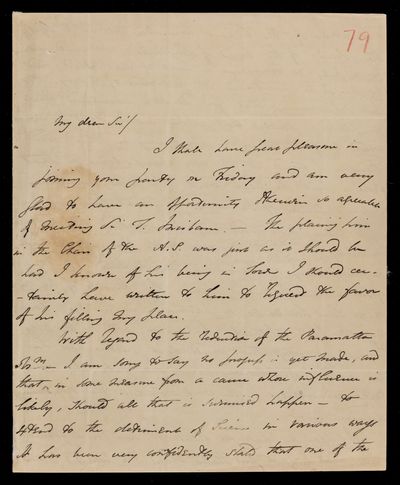 79
My dear Sir/
I shall have great pleasure in
joining your party on Friday and am very
glad to have an opportunity so agreeable
of meeting Sir T. Brisbane. — The placing him
in the Chair of the A.S. was just as it should be
had I known of his being in Town I should cer-
-tainly have written to him to request the favor
of his filling my place.
With regard to the reduction of the Paramatta
I am sorry to say no progress is yet made, and
that in some measure from a cause whose influence is
likely, should all that is surmised happen — to
extend to the detriment of Science in various ways
It has been very confidently stated that one of the